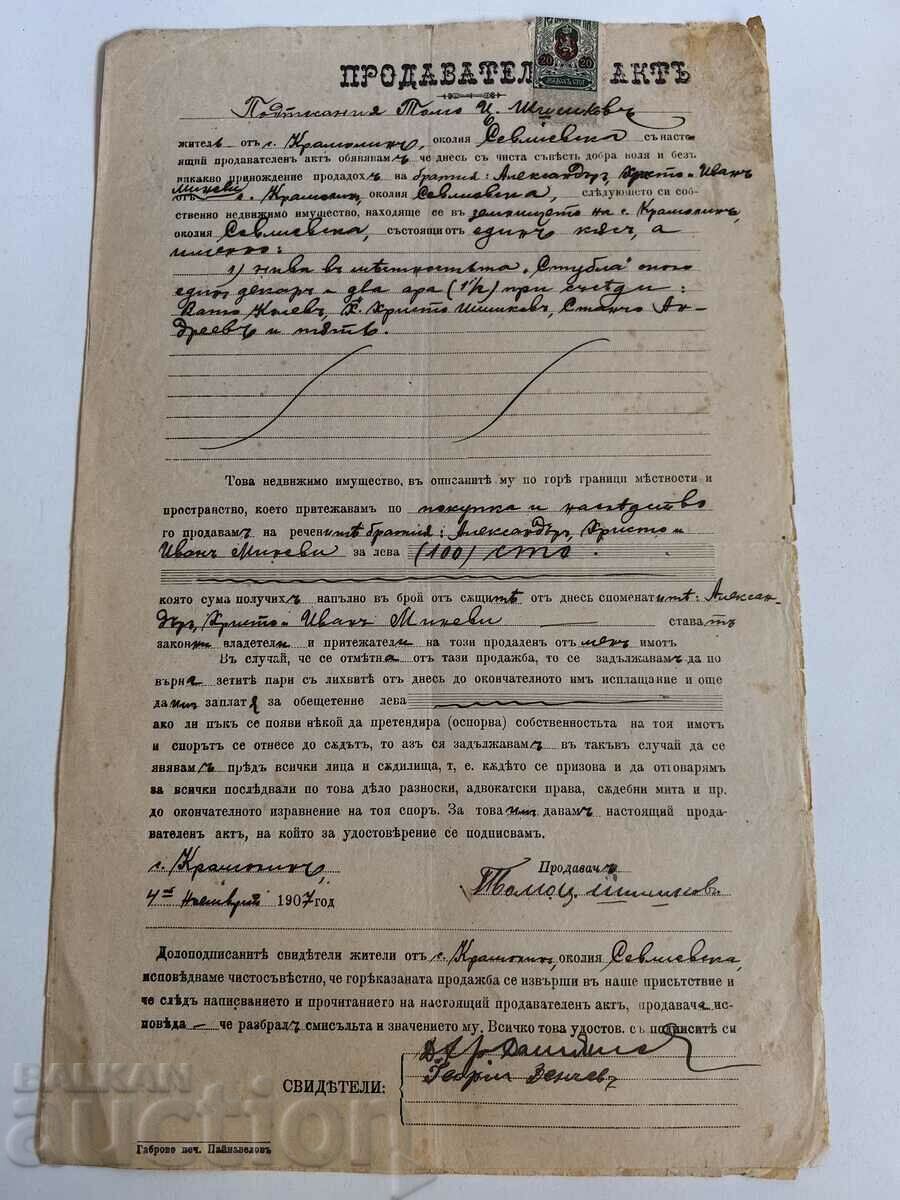 ПРОДАВАТЕЛ АКТЪ
20 20
Подписания Томо Ц. Шишковъ
житель отъ с. Крамолинъ, околия Севлиевска съ насто-
ящий продавателен акт обявявамъ че днесь съ чиста съвѣсть добра воля и безъ
никакво принождение продадохъ на братия: Александъръ, Христо и Иванъ
Миневи отъ с. Крамолинъ, околия Севлиевска, слѣдующето си соб-
ственно недвижимо имущество, находяще се въ землището на с. Крамолинъ,
околия Севлиевска, състоящи отъ единъ къс, а
именно:
1) нива въ мѣстностьта „Стубла" около
единъ декаръ и два ара (1½) при съседи:
Христо Шишковъ, Станчо Ан-
дреевъ и пътъ.
Това недвижимо имущество, въ описаните му по горѣ граници мѣстности и
пространство, което притежавамъ по покупка и наследство
го продавамъ на реченитѣ братия: Александъръ, Христо и
Иванъ Миневи за лева (100) сто.
която сума получихъ напълно въ брой отъ сѫщитѣ отъ днесь споменатитѣ: Алексан-
дъръ, Христо и Иванъ Миневи — ставатъ
законни владетели и притежатели на този продаден отъ менъ имотъ
Въ случай, че се отметна отъ тази продажба, то се задължавамъ да по
върна зетитѣ пари съ лихвитѣ отъ днесь до окончателното имъ исплащание и още
да имъ заплатя за обещетение лева
ако ли пъкъ се появи нѣкой да претендира (оспорва) собственностьта на тоя имотъ
и спорътъ се отнесе до сѫдътъ, то азъ ся задължавамъ въ такъвъ случай да се
явявамъ прѣдъ всички лица и сѫдилища, т. е. кѫдѣто се призова и да отговарямъ
за всички послѣдвали по това дѣло разноски, адвокатски права, сѫдебни мита и пр.
до окончателното изравнение на тоя споръ. За това имъ давамъ настоящий прода-
вателен актъ, на който за удостовѣрение се подписвамъ.
с. Крамолинъ,
Продавачъ
4ий Ноемврий 1907 год
Томо Ц. Шишковъ
Долоподписанитѣ свидѣтели жители отъ с. Крамолинъ, околия Севлиевска,
исповѣдваме чистосъвѣстно, че горѣказаната продажба се извърши въ наше присѫтствие и
че слѣдъ написванието и прочитанието на настоящий продавателен актъ, продавача ис-
повѣда — че разбралъ смисълъта и значението му. Всичко това удостов. съ подписитѣ си
СВИДѢТЕЛИ:
Георги Венчевъ
Габрово печ. Пайнавеловъ
BALKAN
auction